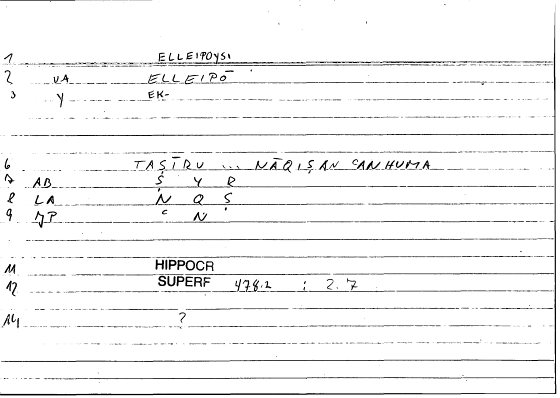 1 ELLEIPOYSI
2 VA ELLEIPŌ
3 Y EK-
6 TAṢĪRU ... NĀQIṢAN ʿANHUMA
7 AB Ṣ Y R
8 LA N Q Ṣ
9 JP ʿ N
11 HIPPOCR
12 SUPERF 478.2 : 2.7
14 ?